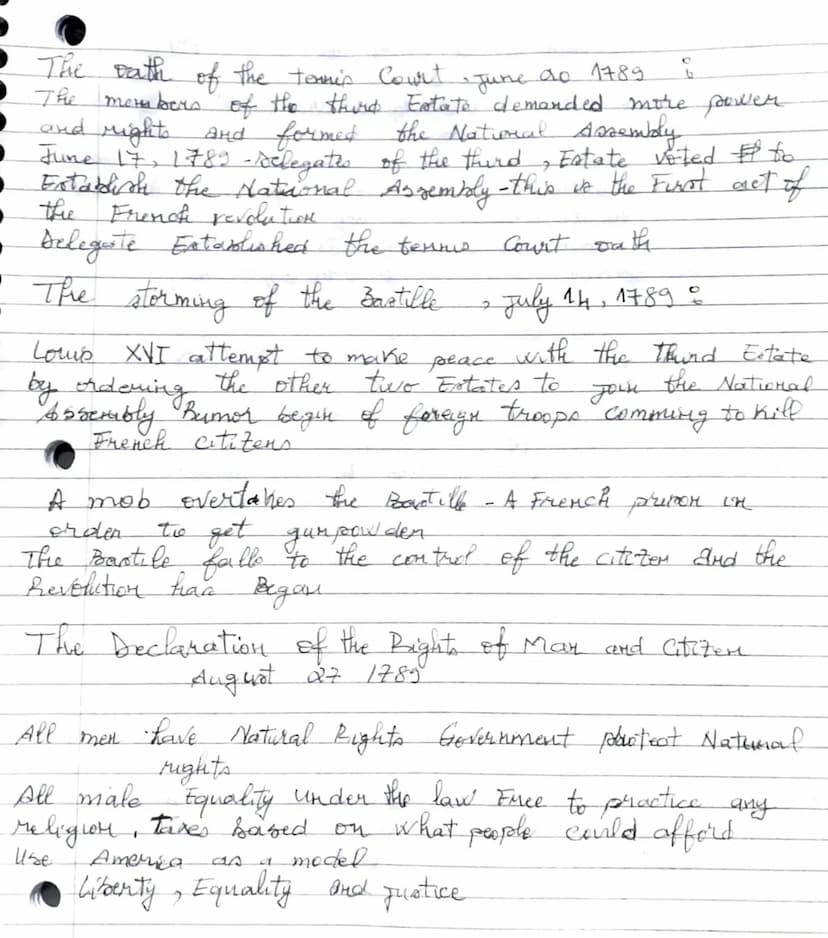 The oath of the tennis Court, June 20 1789 :
The members of the third Estate demanded more power
and rights and formed the National Assembly
June 17, 1789 - Delegates of the third, Estate voted to
Establish the National Assembly - this is the First act of
the French revolution
Delegate Established the tennis Court oath
The storming of the Bastille, July 14, 1789 :
Louis XVI attempt to make peace with the Third Estate
by ordering the other two Estates to join the National
Assembly Rumor begin of foreign troops comming to kill
French citizens
A mob overtakes the Bastille - A French prison in
order to get gunpowder
The Bastile falls to the control of the citizen and the
Revolution has Began
The Declaration of the Rights of Man and Citizen
August 27 1789
All men have Natural Rights Government protect Natural
rights
All male Equality under the law Free to practice any
religion, Taxes based on what people could afford
Use America as a model
Liberty, Equality and justice